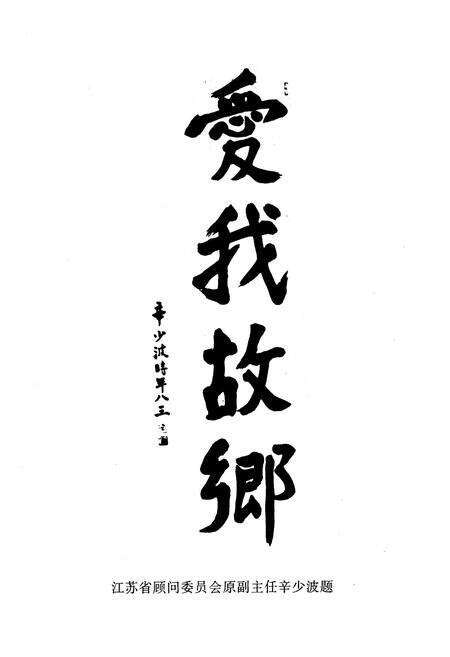 愛我故鄉
辛少波時年八三
江苏省顾问委员会原副主任辛少波题